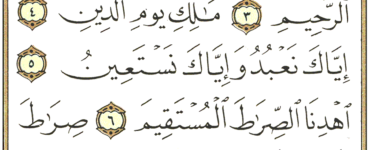 ٱلرَّحِيمِ ٣ مَٰلِكِ يَوْمِ ٱلدِّينِ ٤
إِيَّاكَ نَعْبُدُ وَإِيَّاكَ نَسْتَعِينُ ٥
ٱهْدِنَا ٱلصِّرَٰطَ ٱلْمُسْتَقِيمَ ٦ صِرَٰطَ